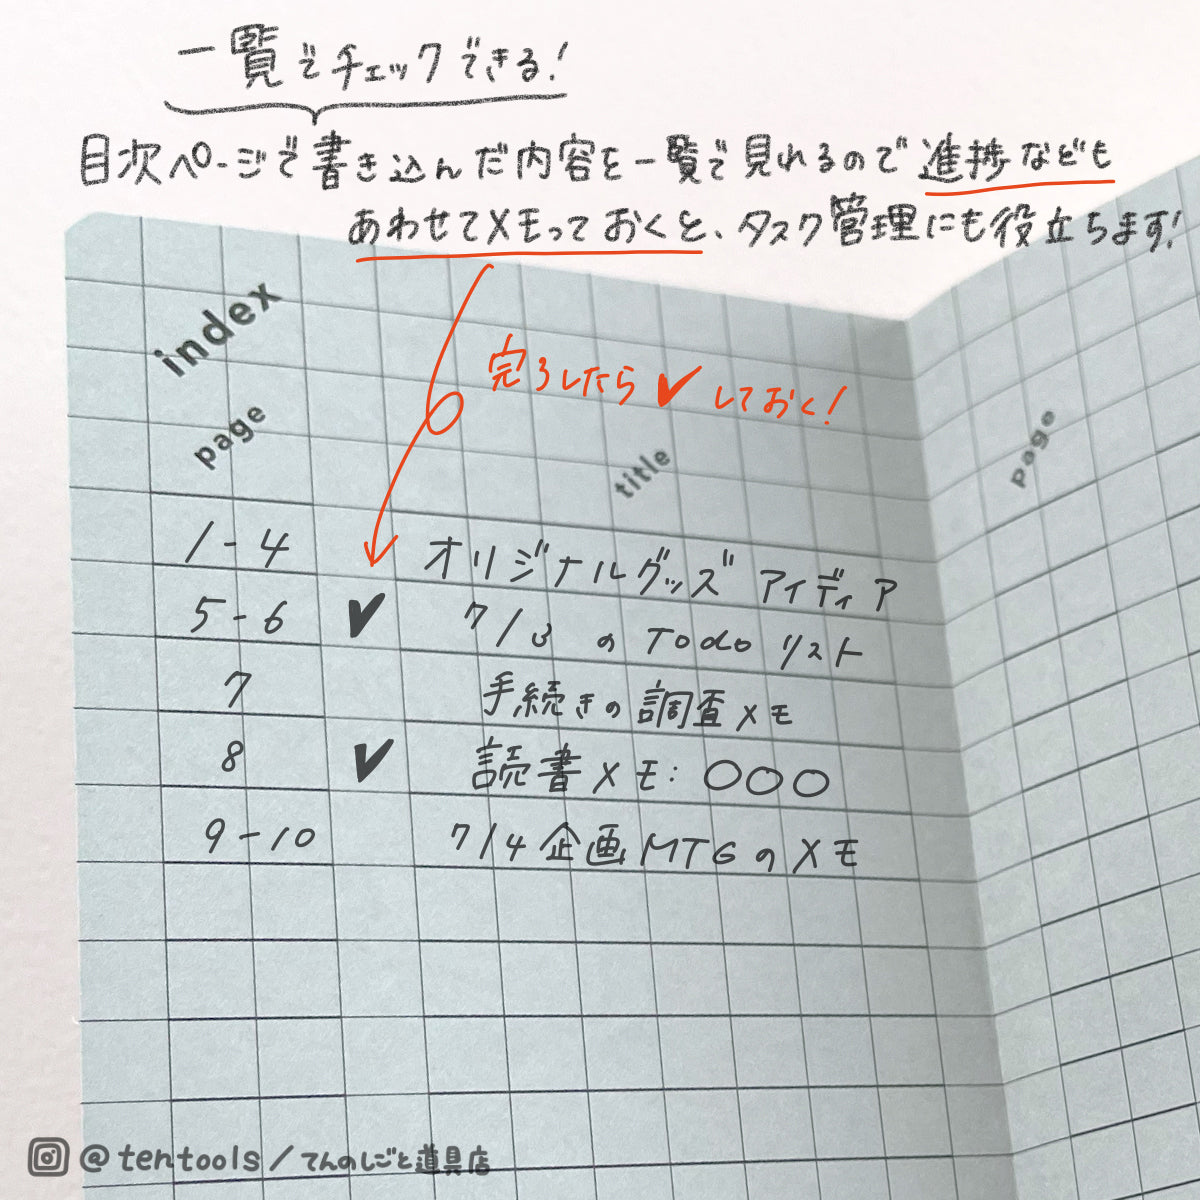 一覧でチェックできる！
目次ページで書き込んだ内容を一覧で見れるので進捗なども
あわせてメモっておくと、タスク管理にも役立ちます！
index
完了したら✔しておく！
page title page
1-4 オリジナルグッズ アイディア
5-6 ✔ 7/3 の Todo リスト
7 手続きの調査メモ
8 ✔ 読書メモ：〇〇〇
9-10 7/4 企画MTGのメモ
@tentools/てんのしごと道具店